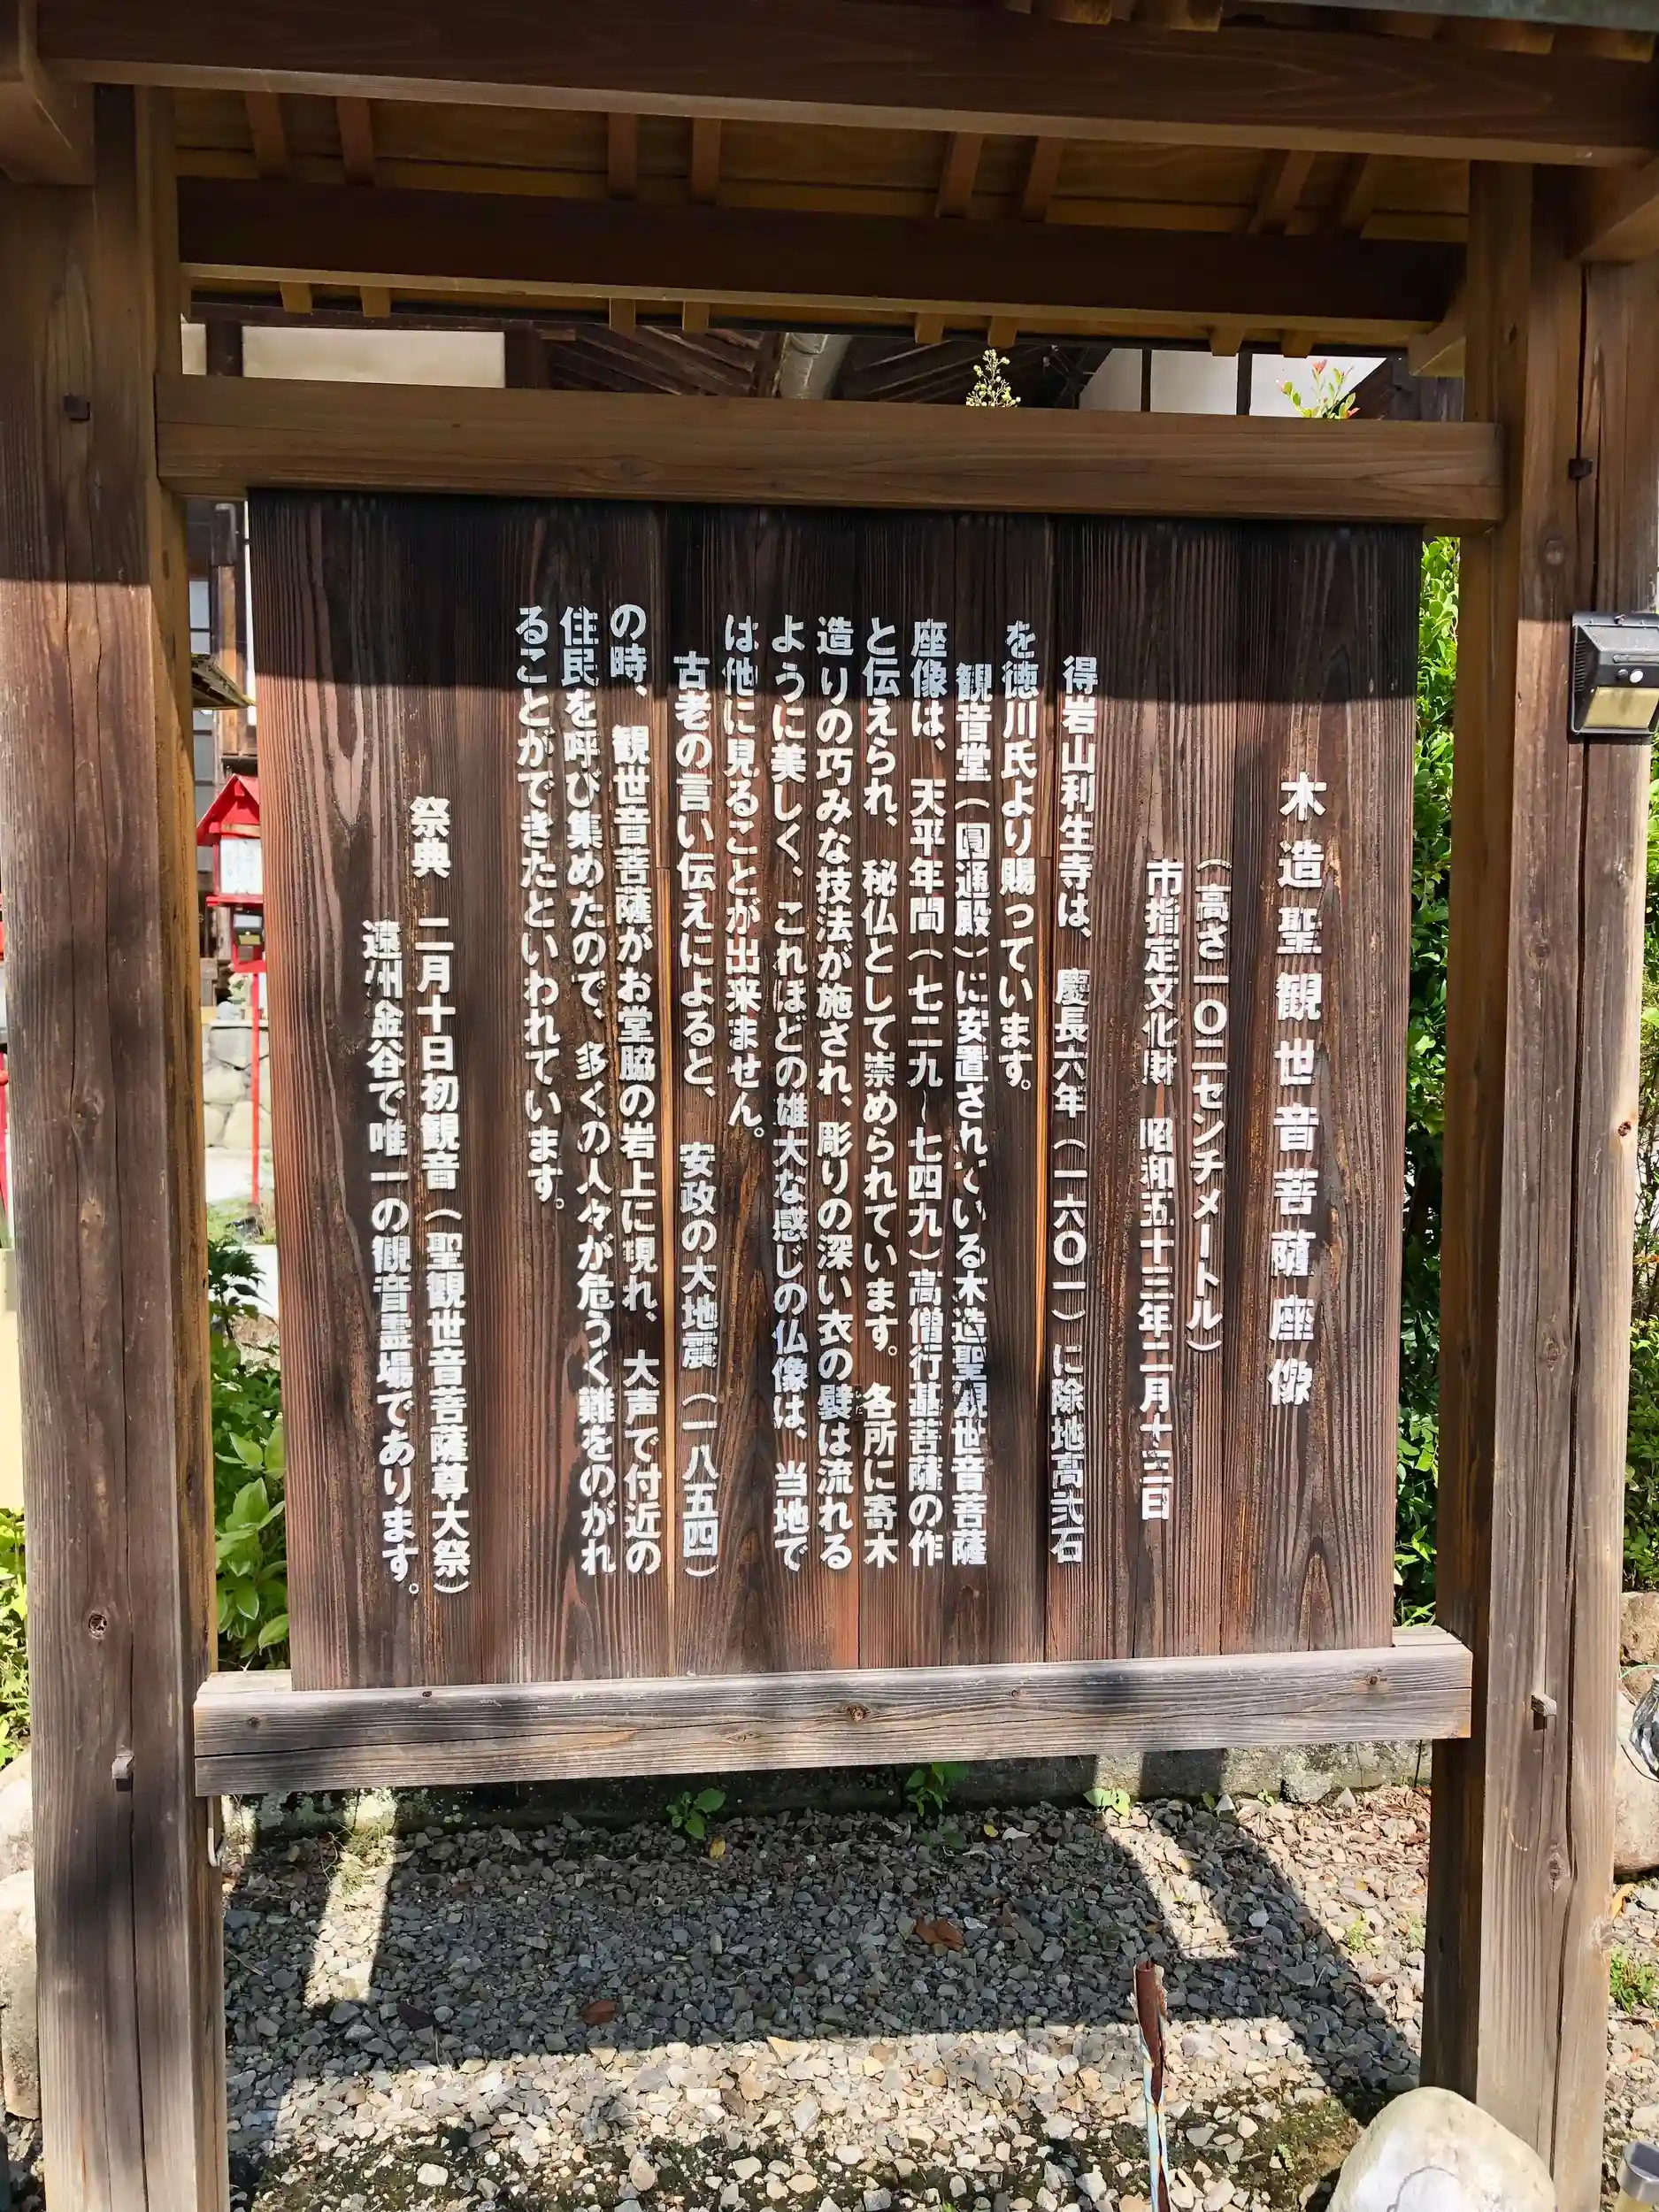 木造聖観世音菩薩座像
（高さ一〇二センチメートル）
市指定文化財　昭和五十三年二月十三日
得岩山利生寺は、慶長六年（一六〇一）に除地高弐石
を徳川氏より賜っています。
観音堂（圓通殿）に安置されている木造聖観世音菩薩
座像は、天平年間（七二九～七四九）高僧行基菩薩の作
と伝えられ、秘仏として崇められています。各所に寄木
造りの巧みな技法が施され、彫りの深い衣の襞は流れる
ように美しく、これほどの雄大な感じの仏像は、当地で
は他に見ることが出来ません。
古老の言い伝えによると、安政の大地震（一八五四）
の時、観世音菩薩がお堂脇の岩上に現れ、大声で付近の
住民を呼び集めたので、多くの人々が危うく難をのがれ
ることができたといわれています。
祭典　二月十日初観音（聖観世音菩薩尊大祭）
遠州金谷で唯一の観音霊場であります。